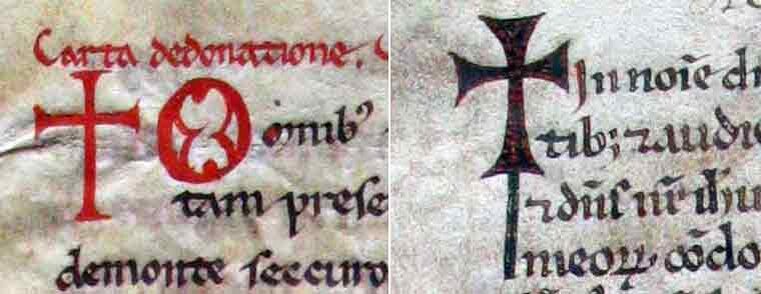 Carta dedonatione.
O omib⁹
tam prese
demonte seccuro
In noı̄e d
tib; ⁊ audi
⁊ dn̄s nr̄ ih̄u
meoꝝ. cōdo